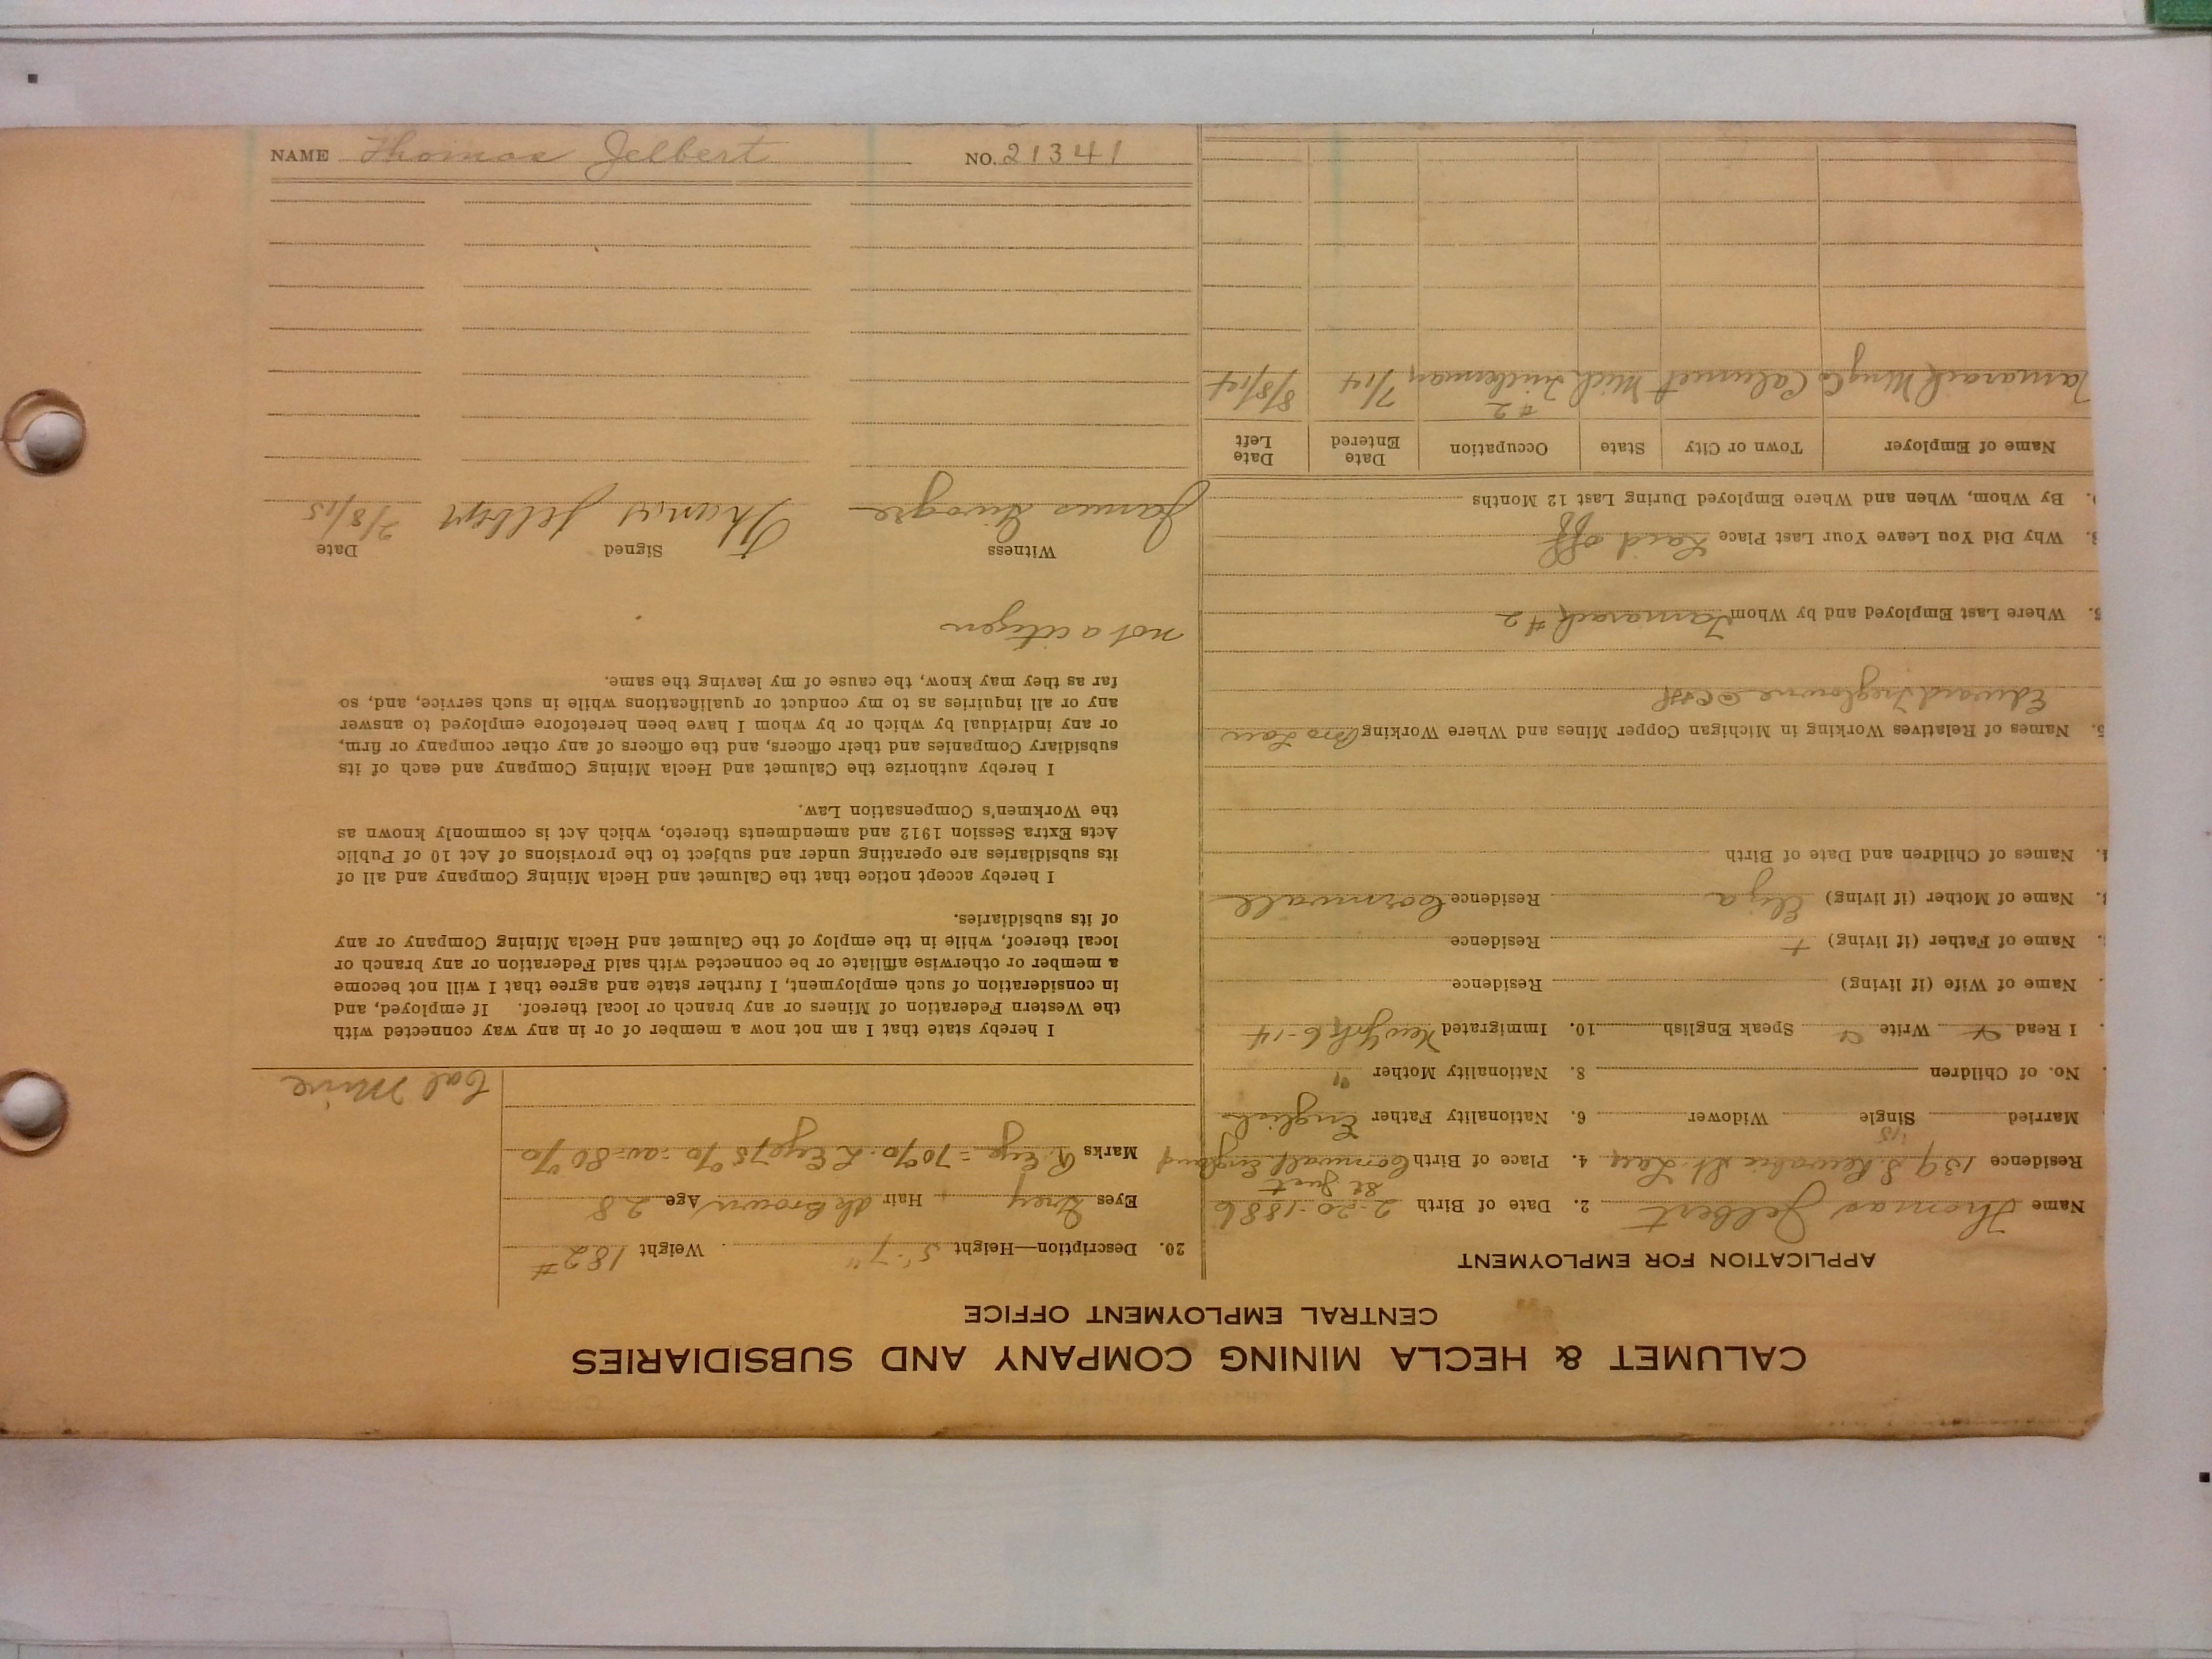 CALUMET & HECLA MINING COMPANY AND SUBSIDIARIES
CENTRAL EMPLOYMENT OFFICE
APPLICATION FOR EMPLOYMENT
Name Thomas Jelbert 2. Date of Birth 2-20-1886
Residence 139 S. Kewabic St. Lau '15 4. Place of Birth St Just Cornwall England
Married Single Widower 6. Nationality Father English
No. of Children 8. Nationality Mother "
I Read Write Speak English 10. Immigrated New York 6-14
Name of Wife (if living) Residence
Name of Father (if living) + Residence
Name of Mother (if living) Eliza Residence Cornwall
4. Names of Children and Date of Birth
5. Names of Relatives Working in Michigan Copper Mines and Where Working Bro Law
Edward Treglowne
Where Last Employed and by Whom Tamarack #2
Why Did You Leave Your Last Place Laid off
By Whom, When and Where Employed During Last 12 Months
Name of Employer Town or City State Occupation Date Entered Date Left
Tamarack Mng Co Calumet Mich #2 7/14 8/8/14
20. Description—Height 5'-7" Weight 182#
Eyes Grey Hair dk Brown Age 28
Marks R. Eye = 70% L Eye 75% av = 80%
Cal Mine
I hereby state that I am not now a member of or in any way connected with
the Western Federation of Miners or any branch or local thereof. If employed, and
in consideration of such employment, I further state and agree that I will not become
a member or otherwise affiliate or be connected with said Federation or any branch or
local thereof, while in the employ of the Calumet and Hecla Mining Company or any
of its subsidiaries.
I hereby accept notice that the Calumet and Hecla Mining Company and all of
its subsidiaries are operating under and subject to the provisions of Act 10 of Public
Acts Extra Session 1912 and amendments thereto, which Act is commonly known as
the Workmen's Compensation Law.
I hereby authorize the Calumet and Hecla Mining Company and each of its
subsidiary Companies and their officers, and the officers of any other company or firm,
or any individual by which or by whom I have been heretofore employed to answer
any or all inquiries as to my conduct or qualifications while in such service, and, so
far as they may know, the cause of my leaving the same.
not a citizen
Witness Signed Date
James Thomas Jelbert 2/8/15
NAME Thomas Jelbert NO. 21341